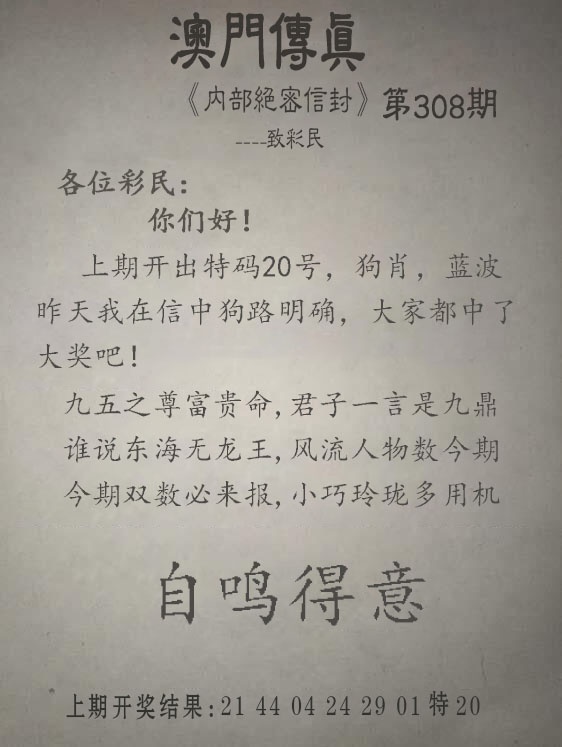 澳門傳眞
《内部絕密信封》第308期
----致彩民
各位彩民：
你们好！
上期开出特码20号，狗肖，蓝波
昨天我在信中狗路明确，大家都中了
大奖吧！
九五之尊富贵命,君子一言是九鼎
谁说东海无龙王,风流人物数今期
今期双数必来报,小巧玲珑多用机
自鸣得意
上期开奖结果:21 44 04 24 29 01 特 20